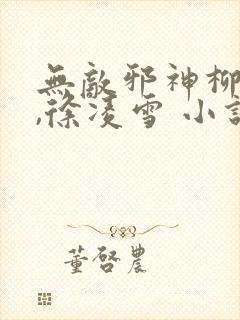 無敵邪神柳
,徐凌雪 小説
董啓農